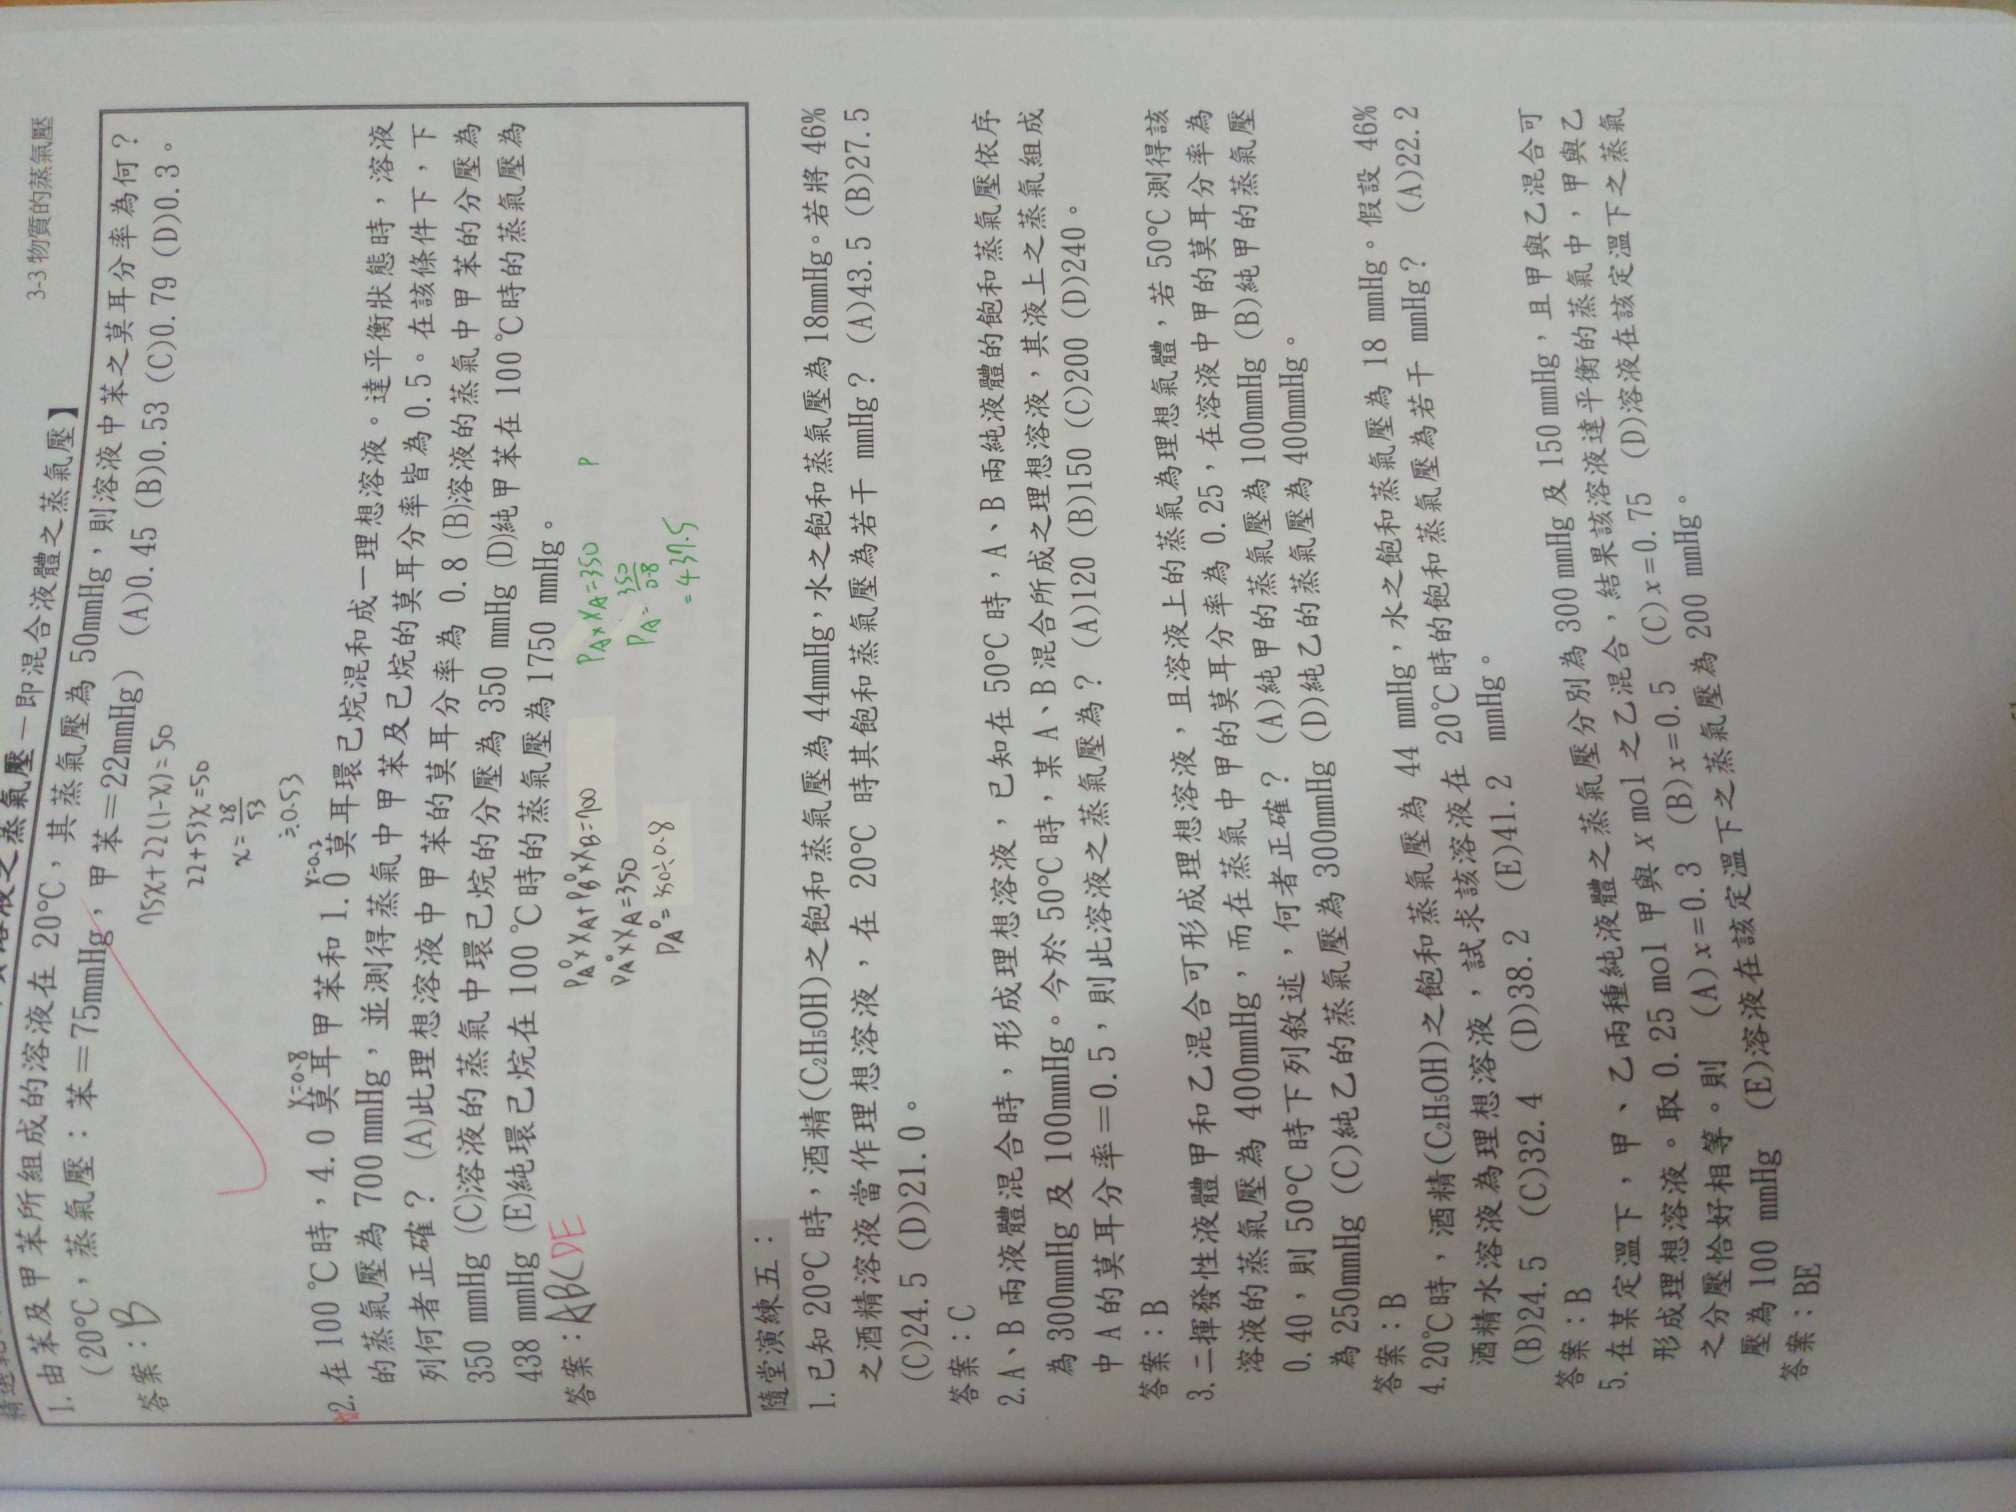 3-3 物質的蒸氣壓
溶液之蒸氣壓－即混合液體之蒸氣壓】
1. 由苯及甲苯所組成的溶液在 20℃，其蒸氣壓為 50mmHg，則溶液中苯之莫耳分率為何？
(20℃，蒸氣壓：苯＝75mmHg，甲苯＝22mmHg) (A)0.45 (B)0.53 (C)0.79 (D)0.3。
答案：B
75x+22(1-x)=50
22+53x=50
x=28/53
≒0.53
x=0.8
x=0.2
2. 在 100 ℃時，4.0 莫耳甲苯和 1.0 莫耳環己烷混和成一理想溶液。達平衡狀態時，溶液
的蒸氣壓為 700 mmHg，並測得蒸氣中甲苯及己烷的莫耳分率皆為 0.5。在該條件下，下
列何者正確？ (A)此理想溶液中甲苯的莫耳分率為 0.8 (B)溶液的蒸氣中甲苯的分壓為
350 mmHg (C)溶液的蒸氣中環己烷的分壓為 350 mmHg (D)純甲苯在 100 ℃時的蒸氣壓為
438 mmHg (E)純環己烷在 100 ℃時的蒸氣壓為 1750 mmHg。
答案：ABCDE
PA°×XA+PB°×XB=700
PA°×XA=350
PA°=350÷0.8
PA×XA=350
P
PA=350/0.8
=437.5
隨堂演練五：
1. 已知 20℃時，酒精(C₂H₅OH)之飽和蒸氣壓為 44mmHg，水之飽和蒸氣壓為 18mmHg。若將 46%
之酒精溶液當作理想溶液，在 20℃ 時其飽和蒸氣壓為若干 mmHg？ (A)43.5 (B)27.5
(C)24.5 (D)21.0。
答案：C
2. A、B 兩液體混合時，形成理想溶液，已知在 50℃時，A、B 兩純液體的飽和蒸氣壓依序
為 300mmHg 及 100mmHg。今於 50℃時，某 A、B 混合所成之理想溶液，其液上之蒸氣組成
中 A 的莫耳分率＝0.5，則此溶液之蒸氣壓為？ (A)120 (B)150 (C)200 (D)240。
答案：B
3. 二揮發性液體甲和乙混合可形成理想溶液，且溶液上的蒸氣為理想氣體，若 50℃測得該
溶液的蒸氣壓為 400mmHg，而在蒸氣中甲的莫耳分率為 0.25，在溶液中甲的莫耳分率為
0.40，則 50℃時下列敘述，何者正確？ (A)純甲的蒸氣壓為 100mmHg (B)純甲的蒸氣壓
為 250mmHg (C)純乙的蒸氣壓為 300mmHg (D)純乙的蒸氣壓為 400mmHg。
答案：B
4. 20℃時，酒精(C₂H₅OH)之飽和蒸氣壓為 44 mmHg，水之飽和蒸氣壓為 18 mmHg。假設 46%
酒精水溶液為理想溶液，試求該溶液在 20℃時的飽和蒸氣壓為若干 mmHg？ (A)22.2
(B)24.5 (C)32.4 (D)38.2 (E)41.2 mmHg。
答案：B
5. 在某定溫下，甲、乙兩種純液體之蒸氣壓分別為 300 mmHg 及 150 mmHg，且甲與乙混合可
形成理想溶液。取 0.25 mol 甲與 x mol 之乙混合，結果該溶液達平衡的蒸氣中，甲與乙
之分壓恰好相等。則 (A)x=0.3 (B)x=0.5 (C)x=0.75 (D)溶液在該定溫下之蒸氣
壓為 100 mmHg (E)溶液在該定溫下之蒸氣壓為 200 mmHg。
答案：BE